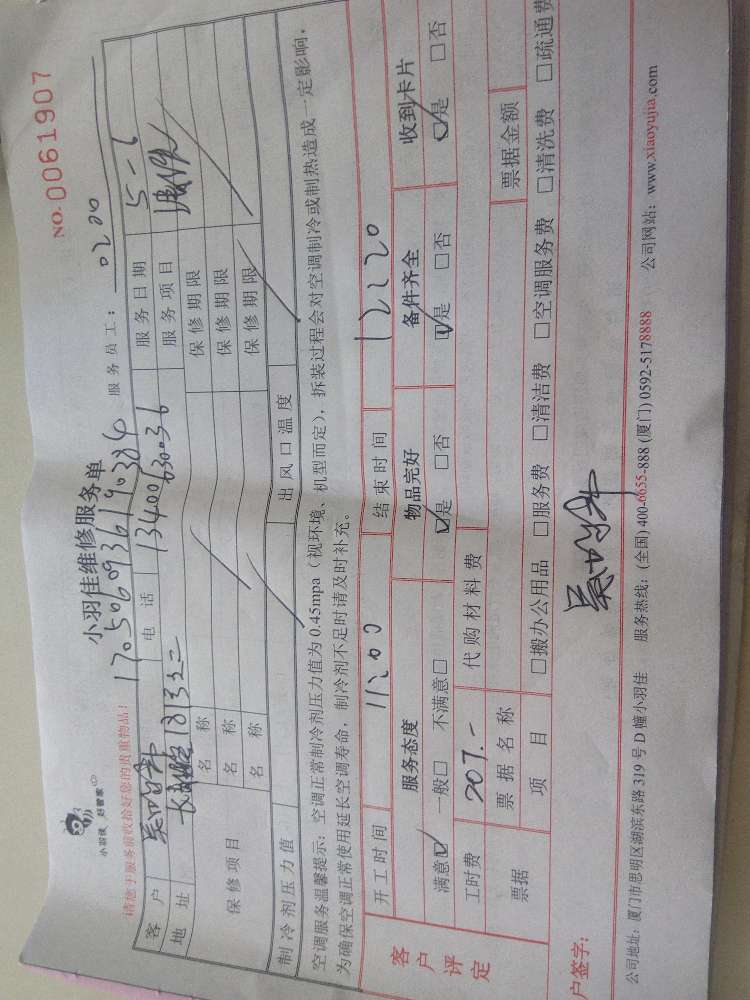 小羽佳 好管家
小羽佳维修服务单
NO. 0061907
1705060936190384
请您于服务前收拾好您的贵重物品!
服务员工: 0200
客户 电话 13400630036 服务日期 5-6
地址 服务项目
保修项目
名称 保修期限
名称 保修期限
名称 保修期限
制冷剂压力值 出风口温度
空调服务温馨提示: 空调正常制冷剂压力值为 0.45mpa (视环境、机型而定), 拆装过程会对空调制冷或制热造成一定影响,
为确保空调正常使用延长空调寿命, 制冷剂不足时请及时补充。
客户评定
开工时间 11:00 结束时间 12:20
服务态度 物品完好 备件齐全 收到卡片
满意☑ 一般□ 不满意□ ☑是 □否 ☑是 □否 ☑是 □否
工时费 207.- 代购材料费
票据 票据名称 票据金额
项目 □搬办公用品 □服务费 □清洁费 □空调服务费 □清洗费 □疏通费
户签字:
公司地址: 厦门市思明区湖滨东路 319 号 D 幢小羽佳 服务热线: (全国) 400-6655-888 (厦门) 0592-5178888 公司网站: www.xiaoyujia.com